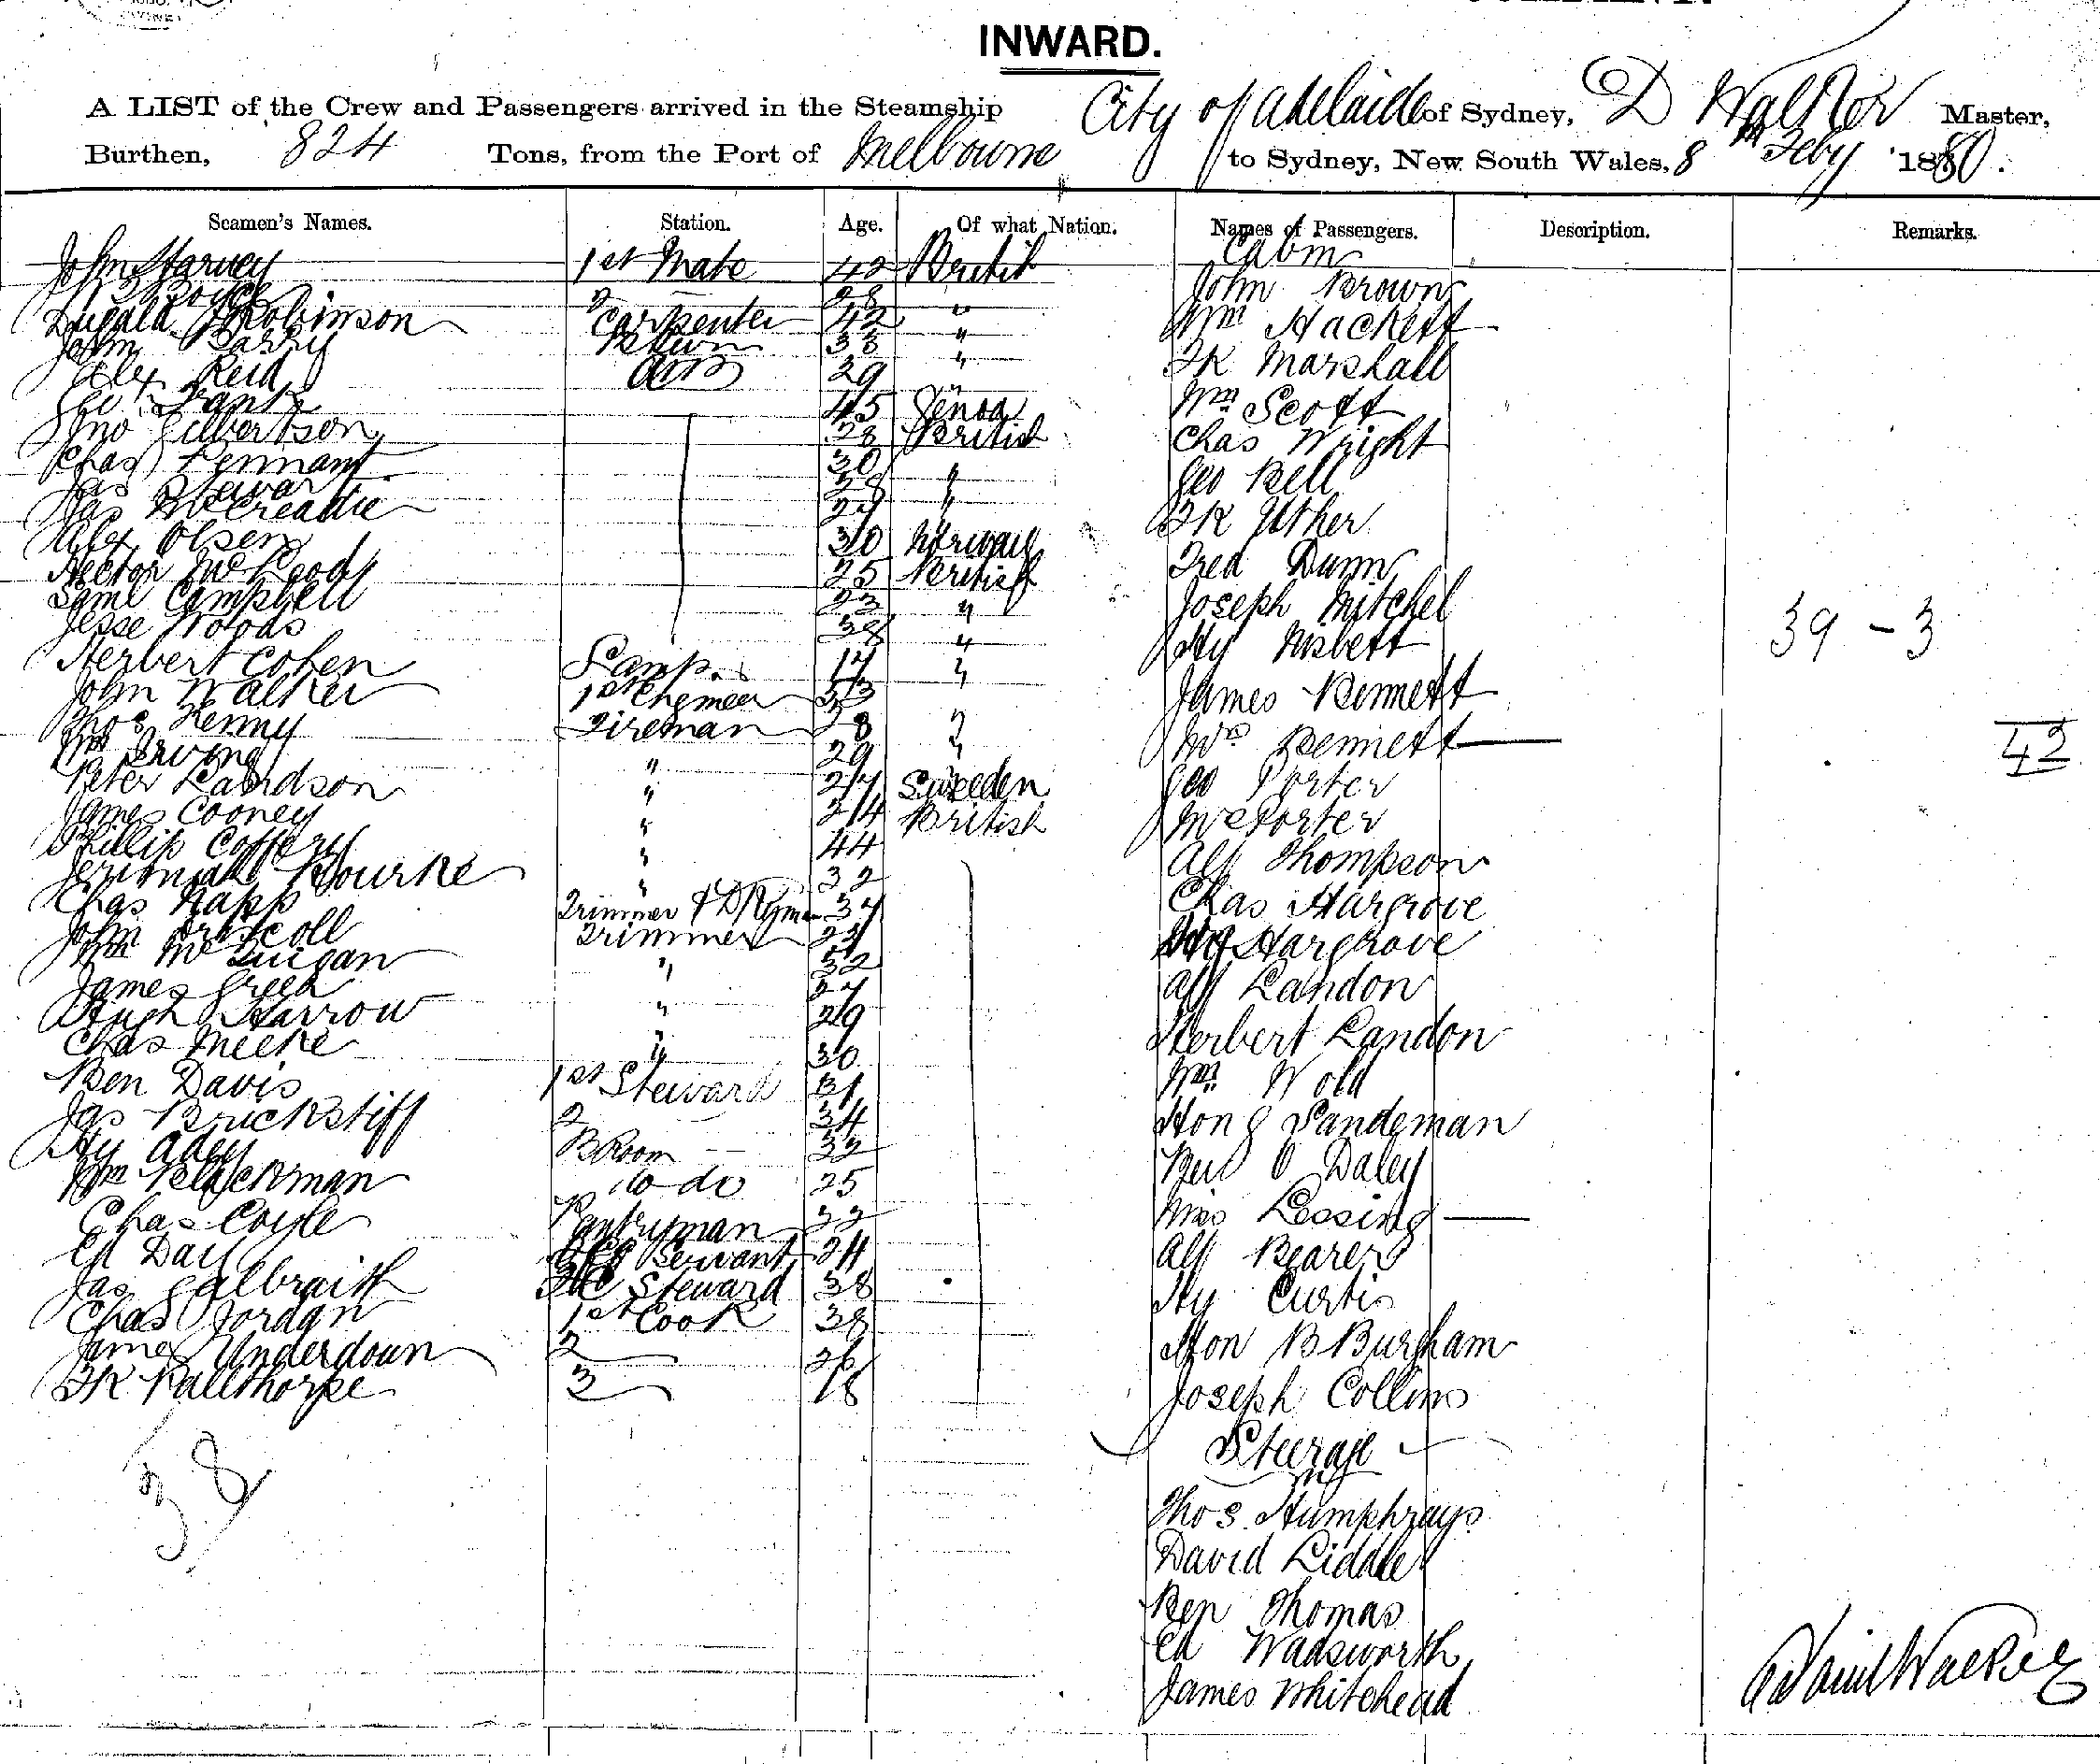 INWARD.
A LIST of the Crew and Passengers arrived in the Steamship City of Adelaide of Sydney, D Walker Master,
Burthen, 824 Tons, from the Port of Melbourne to Sydney, New South Wales, 8th Feby 1880.
Seamen's Names. Station. Age. Of what Nation. Names of Passengers. Description. Remarks.
Cabin
John Harvey 1st Mate 42 British John Brown
Boyce 2 28 " Wm Hackett
Dugald Robinson Carpenter 42 " Fk Marshall
John Barry 33 " Wm Scott
Alex Reid AB 29 " Chas Wright
Geo Frank 45 Genoa Geo Bell
Jno Gilbertson 28 British Fk Uther
Chas Pennant 30 " Fred Dunn
Jas Stewart 38 " Joseph Mitchel
Jas McCreadie 27 Hy Nisbett
Alex Olsen 30 Norway James Bennett
Hector McLeod 25 British Mrs Bennett
Saml Campbell 23 " Geo Porter
Jesse Woods 38 " Mrs Porter
Herbert Cohen Lamp. 17 " Alf Thompson
John Walker 1st Engineer 33 Chas Hargrove
Thos Kenny Fireman 28 " Hargrove
Wm Irving " 29 " Alf Landon
Peter Davidson " 27 Sweden Herbert Landon
James Cooney " 24 British Wm Wold
Phillip Coffery " 44 Hon G Sandeman
Jerimiah Bourke " 32 Rev O Daley
Chas Rapp Trimmer & Dkyman 37 Miss Lessing
John Driscoll Trimmer 27 Alf Bearer
Wm McGuigan " 52 Hy Curtis
James Green 27 Hon B Burgham
Hugh Harrow " 29 Joseph Collins
Chas Meeke " 30
Ben Davis 1st Steward 31
Jas Brickstiff 2 34
Hy Adey B Room 32
Wm Blackman do do 25
Chas Coyle Pantryman 22
Ed Day Servant 24
Jas Galbraith Steward 38
Chas Jordan 1st Cook 38
James Underdown 2 26
Fk Pallthorpe 3 18
38
Steerage
Thos Humphrays
David Liddle
Ben Thomas
Ed Wadsworth
James Whitehead
39 - 3
42
David Walker